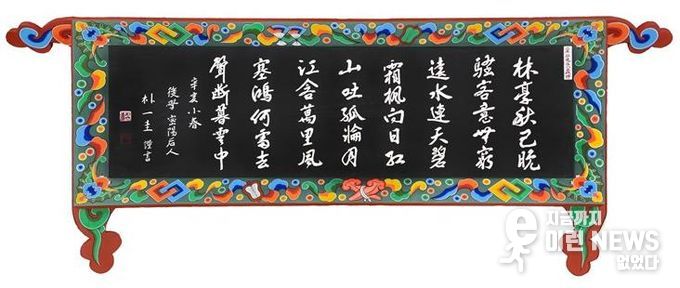 林亭秋已晚
騷客意無窮
遠水連天碧
霜楓向日紅
山吐孤輪月
江含萬里風
塞鴻何處去
聲斷暮雲中
辛亥小春
後學 密陽后人
朴一圭 謹書
지금까지
이런 NEWS
없었다